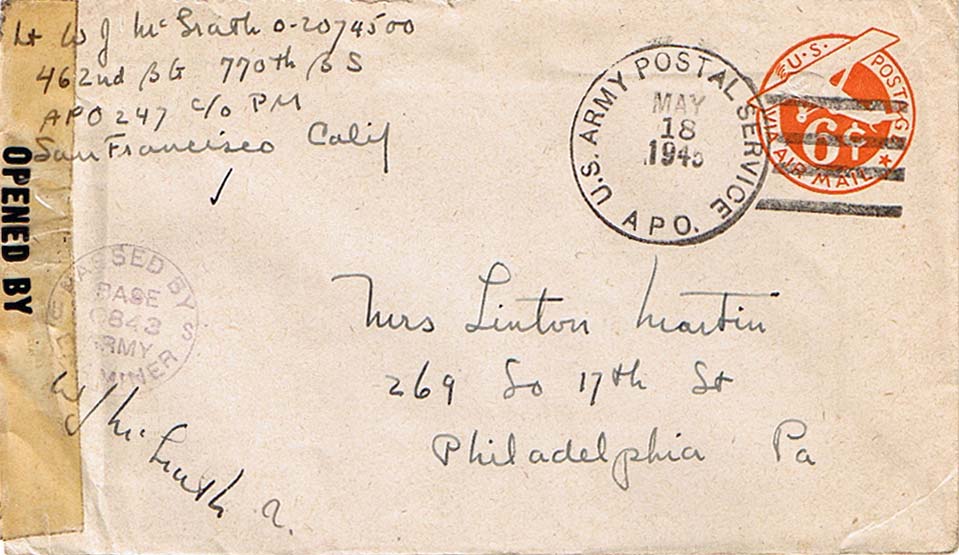 Lt W J McGrath O-2074500
462nd BG 770th BS
APO 247 c/o PM
San Francisco Calif
U.S. ARMY POSTAL SERVICE
A P O.
MAY
18
1945
U.S. POSTAGE
6¢
VIA AIR MAIL
OPENED BY
PASSED BY
BASE
0843
ARMY
Mrs Linton Martin
269 So 17th St
Philadelphia Pa
W J McGrath